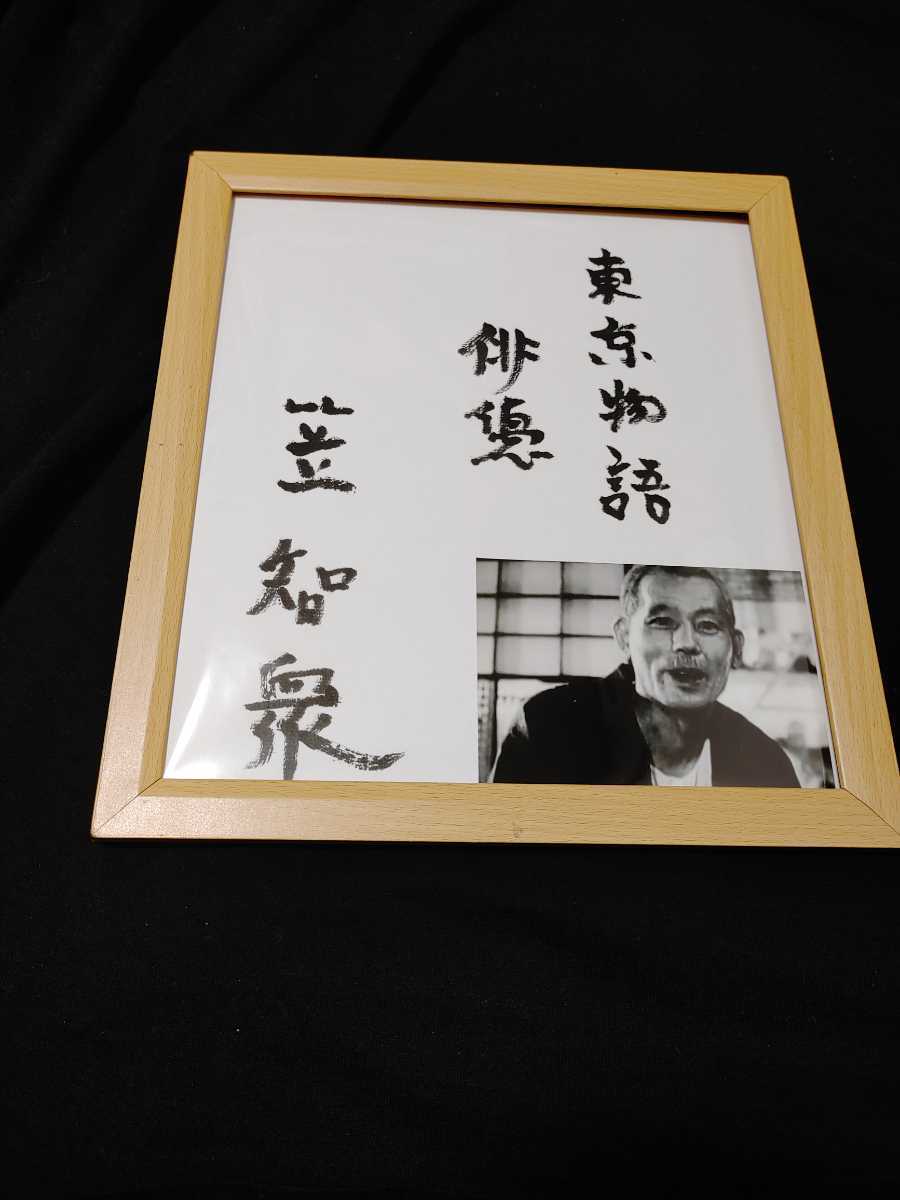 東京物語
俳優
笠智衆